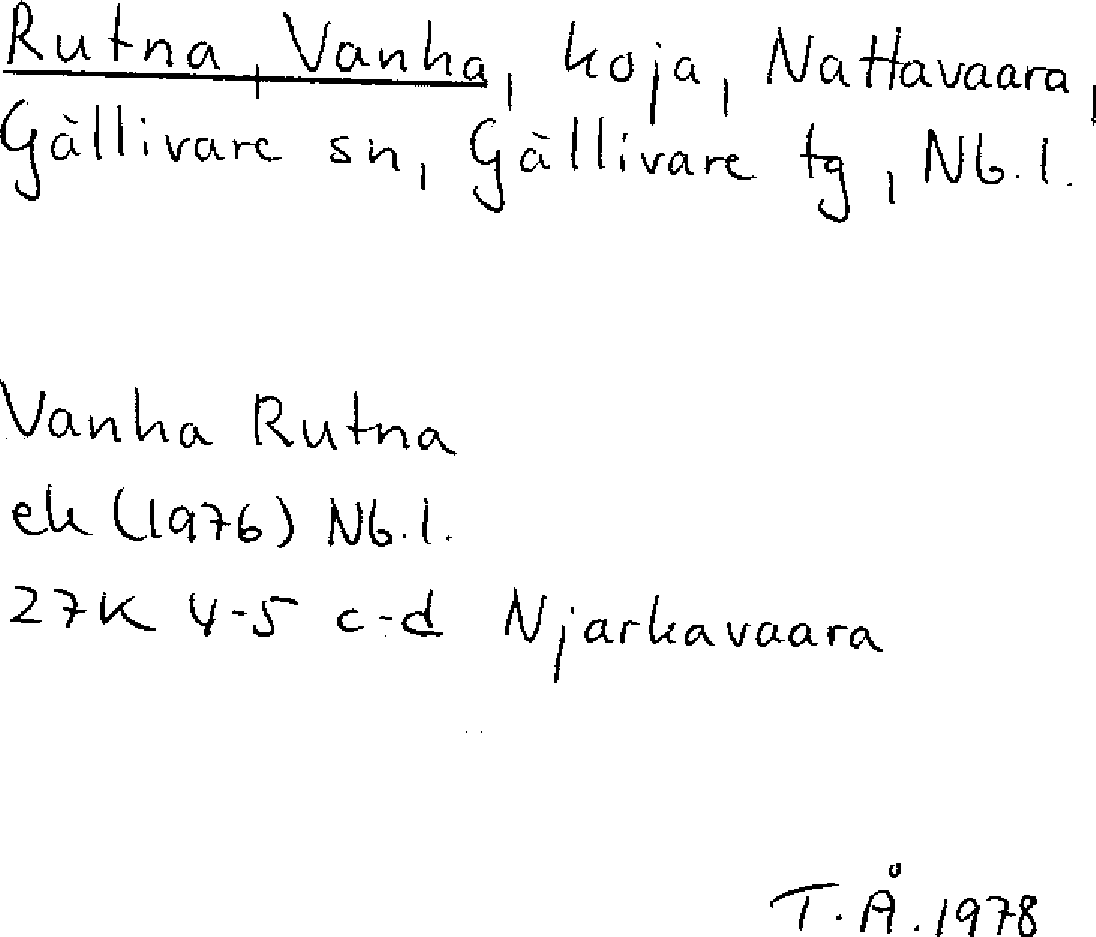 Rutna, Vanha, koja, Nattavaara,
Gällivare sn, Gällivare tg, Nb.l.
Vanha Rutna
ek (1976) Nb.l.
27K 4-5 c-d Njarkavaara
T.Å.1978